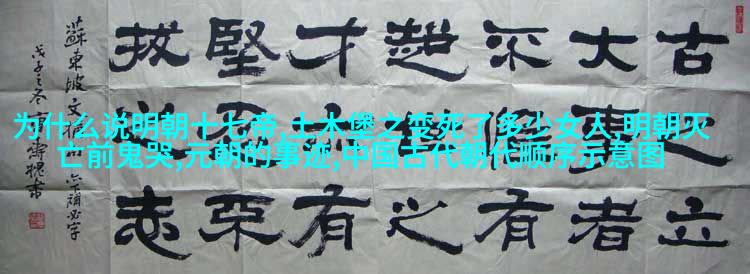 古之立
大事者
不惟有
超世之
才亦有
堅忍不
拔之志
蘇東坡文
戊子之冬
为什么说明朝十七帝,土木堡之变死了多少女人,明朝灭
亡前鬼哭,元朝的事迹,中国古代朝代顺序示意图